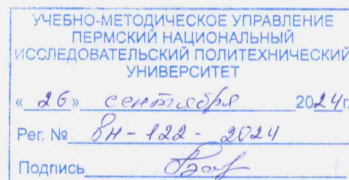 УЧЕБНО-МЕТОДИЧЕСКОЕ УПРАВЛЕНИЕ
ПЕРМСКИЙ НАЦИОНАЛЬНЫЙ
ИССЛЕДОВАТЕЛЬСКИЙ ПОЛИТЕХНИЧЕСКИЙ
УНИВЕРСИТЕТ
« 26 » сентября 2024г.
Рег. № ВН-122-2024
Подпись